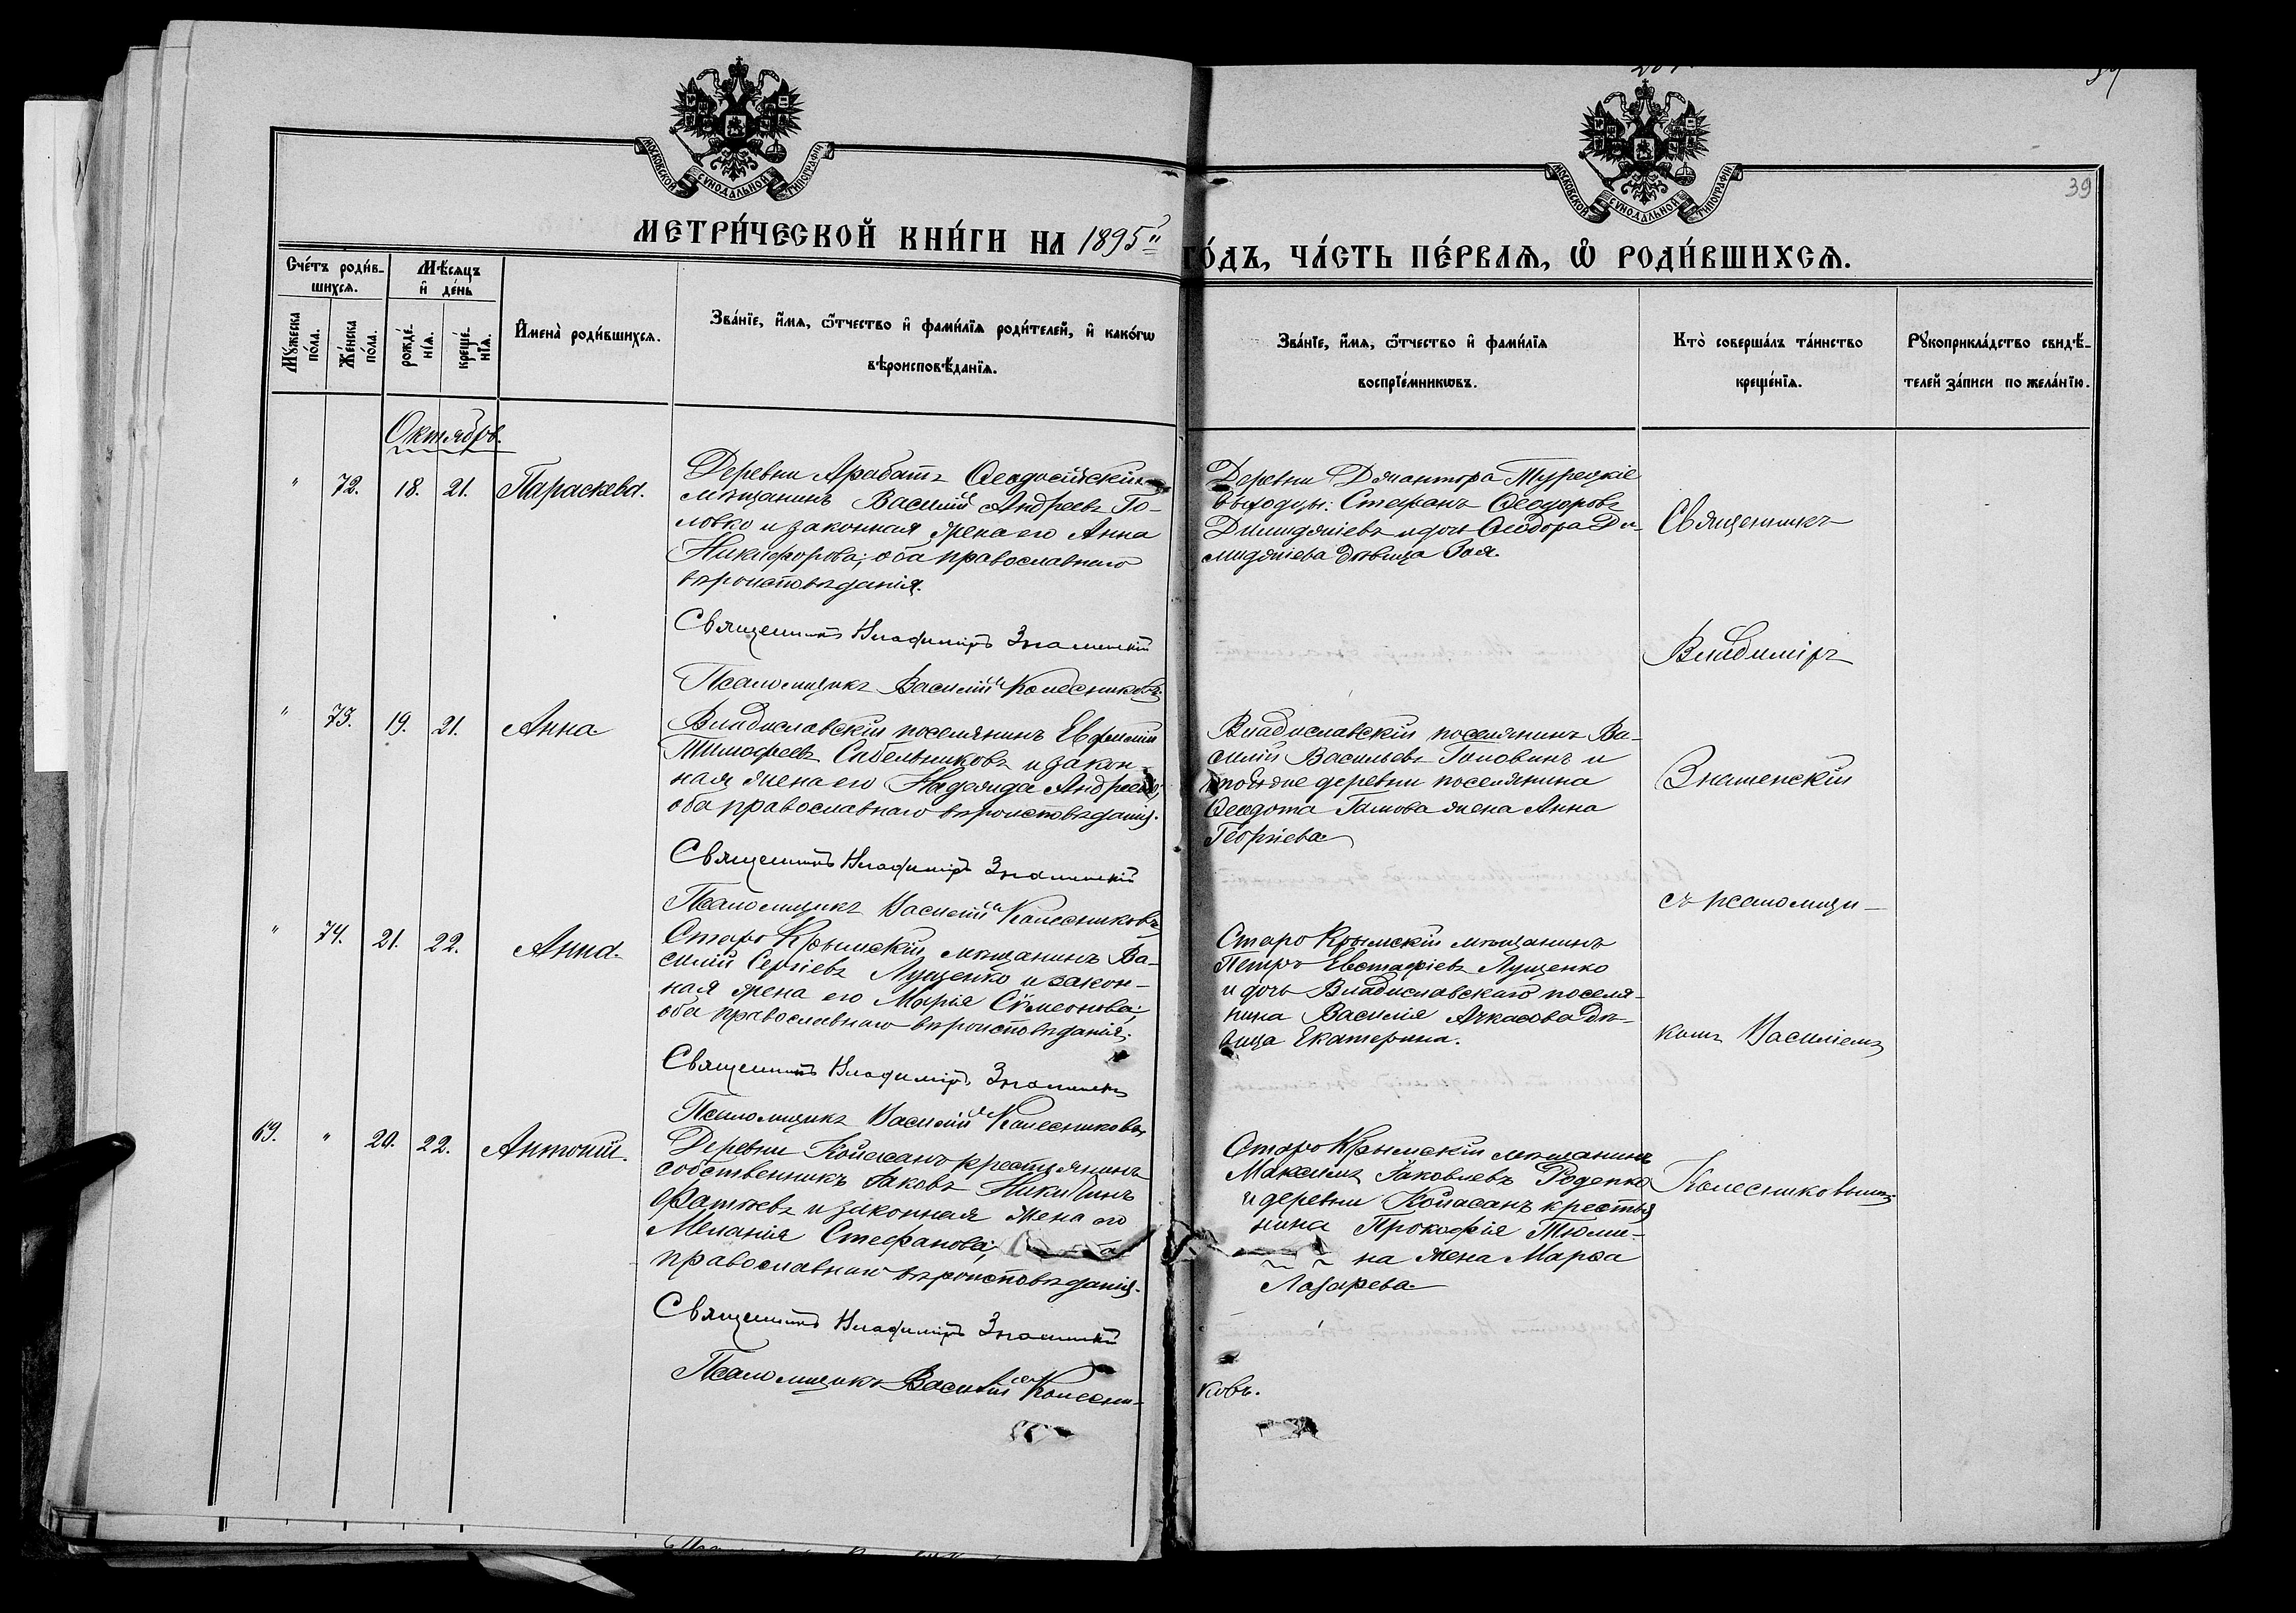 39
МОСКОВСКОЙ СУНОДАЛЬНОЙ ТИПОГРАФІИ
МОСКОВСКОЙ СУНОДАЛЬНОЙ ТИПОГРАФІИ
МЕТРИ́ЧЕСКОЙ КНИ́ГИ НА 1895й
ГО́ДЪ, ЧА́СТЬ ПЕ́РВАѦ, Ѡ РОДИ́ВШИХСѦ.
Сче́тъ роди́в-
шихсѧ.
Мѣ́сѧцъ
и де́нь
Мꙋ́жеска
по́ла.
Же́нска
по́ла.
рожде́-
нїѧ.
креще́-
нїѧ.
Имена̀ роди́вшихсѧ.
Зва́нїе, и́мѧ, ѻ́тчество и фами́лїѧ роди́телей, и како́гѡ
вѣроисповѣ́данїѧ.
Зва́нїе, и́мѧ, ѻ́тчество и фами́лїѧ
воспрїе́мникѡвъ.
Кто̀ соверша́лъ та́инство
креще́нїѧ.
Рꙋкоприкла́дство свидѣ́-
телей за́писи по жела́нїю.
Октябрь.
" 72. 18. 21. Параскева.
Деревни Арабатъ Ѳеодосійскій
мѣщанинъ Василій Андреевъ Го-
ловко и законная жена его Анна
Никифорова; оба православнаго
вѣроисповѣданія.
Священникъ Владиміръ Знаменскій
Псаломщикъ Василій Колесниковъ
Деревни Турецкіе
выходцы: Стефанъ Ѳеодоровъ
и дочь Ѳеодора Ди-
дѣвица Зоя.
" 73. 19. 21. Анна
Владиславскій поселянинъ Евфимій
Тимофеевъ Сабельниковъ и закон-
ная жена его Надежда Андреева;
оба православнаго вѣроисповѣданія.
Священникъ Владиміръ Знаменскій
Псаломщикъ Василій Колесниковъ
Владиславскій поселянинъ Ва-
силій Васильевъ Головинъ и
тойже деревни поселянина
Ѳеодота жена Анна
Георгіева
" 74. 21. 22. Анна.
Старо Крымскій мѣщанинъ Ва-
силій Сергіевъ Лущенко и закон-
ная жена его Марія Сѵмеонова;
оба православнаго вѣроисповѣданія.
Священникъ Владиміръ Знаменскій
Псаломщикъ Василій Колесниковъ
Старо Крымскій мѣщанинъ
Петръ Евстафіевъ Лущенко
и дочь Владиславскаго поселя-
нина Василія Ачкасова дѣ-
вица Екатерина.
69. " 20. 22. Антоній.
Деревни Койасанъ крестьянинъ
собственникъ Іаковъ Никитинъ
и законная жена его
Меланія Стефанова;
православнаго вѣроисповѣданія.
Священникъ Владиміръ Знаменскій
Псаломщикъ Василій Колесни-
ковъ.
Старо Крымскій мѣщанинъ
Максимъ Іаковлевъ Роденко
и деревни Койасанъ крестья
нина Прокофія Тюми-
на жена Марѳа
Лазарева
Священникъ
Владиміръ
Знаменскій
съ псаломщи-
комъ Василіемъ
Колесниковымъ